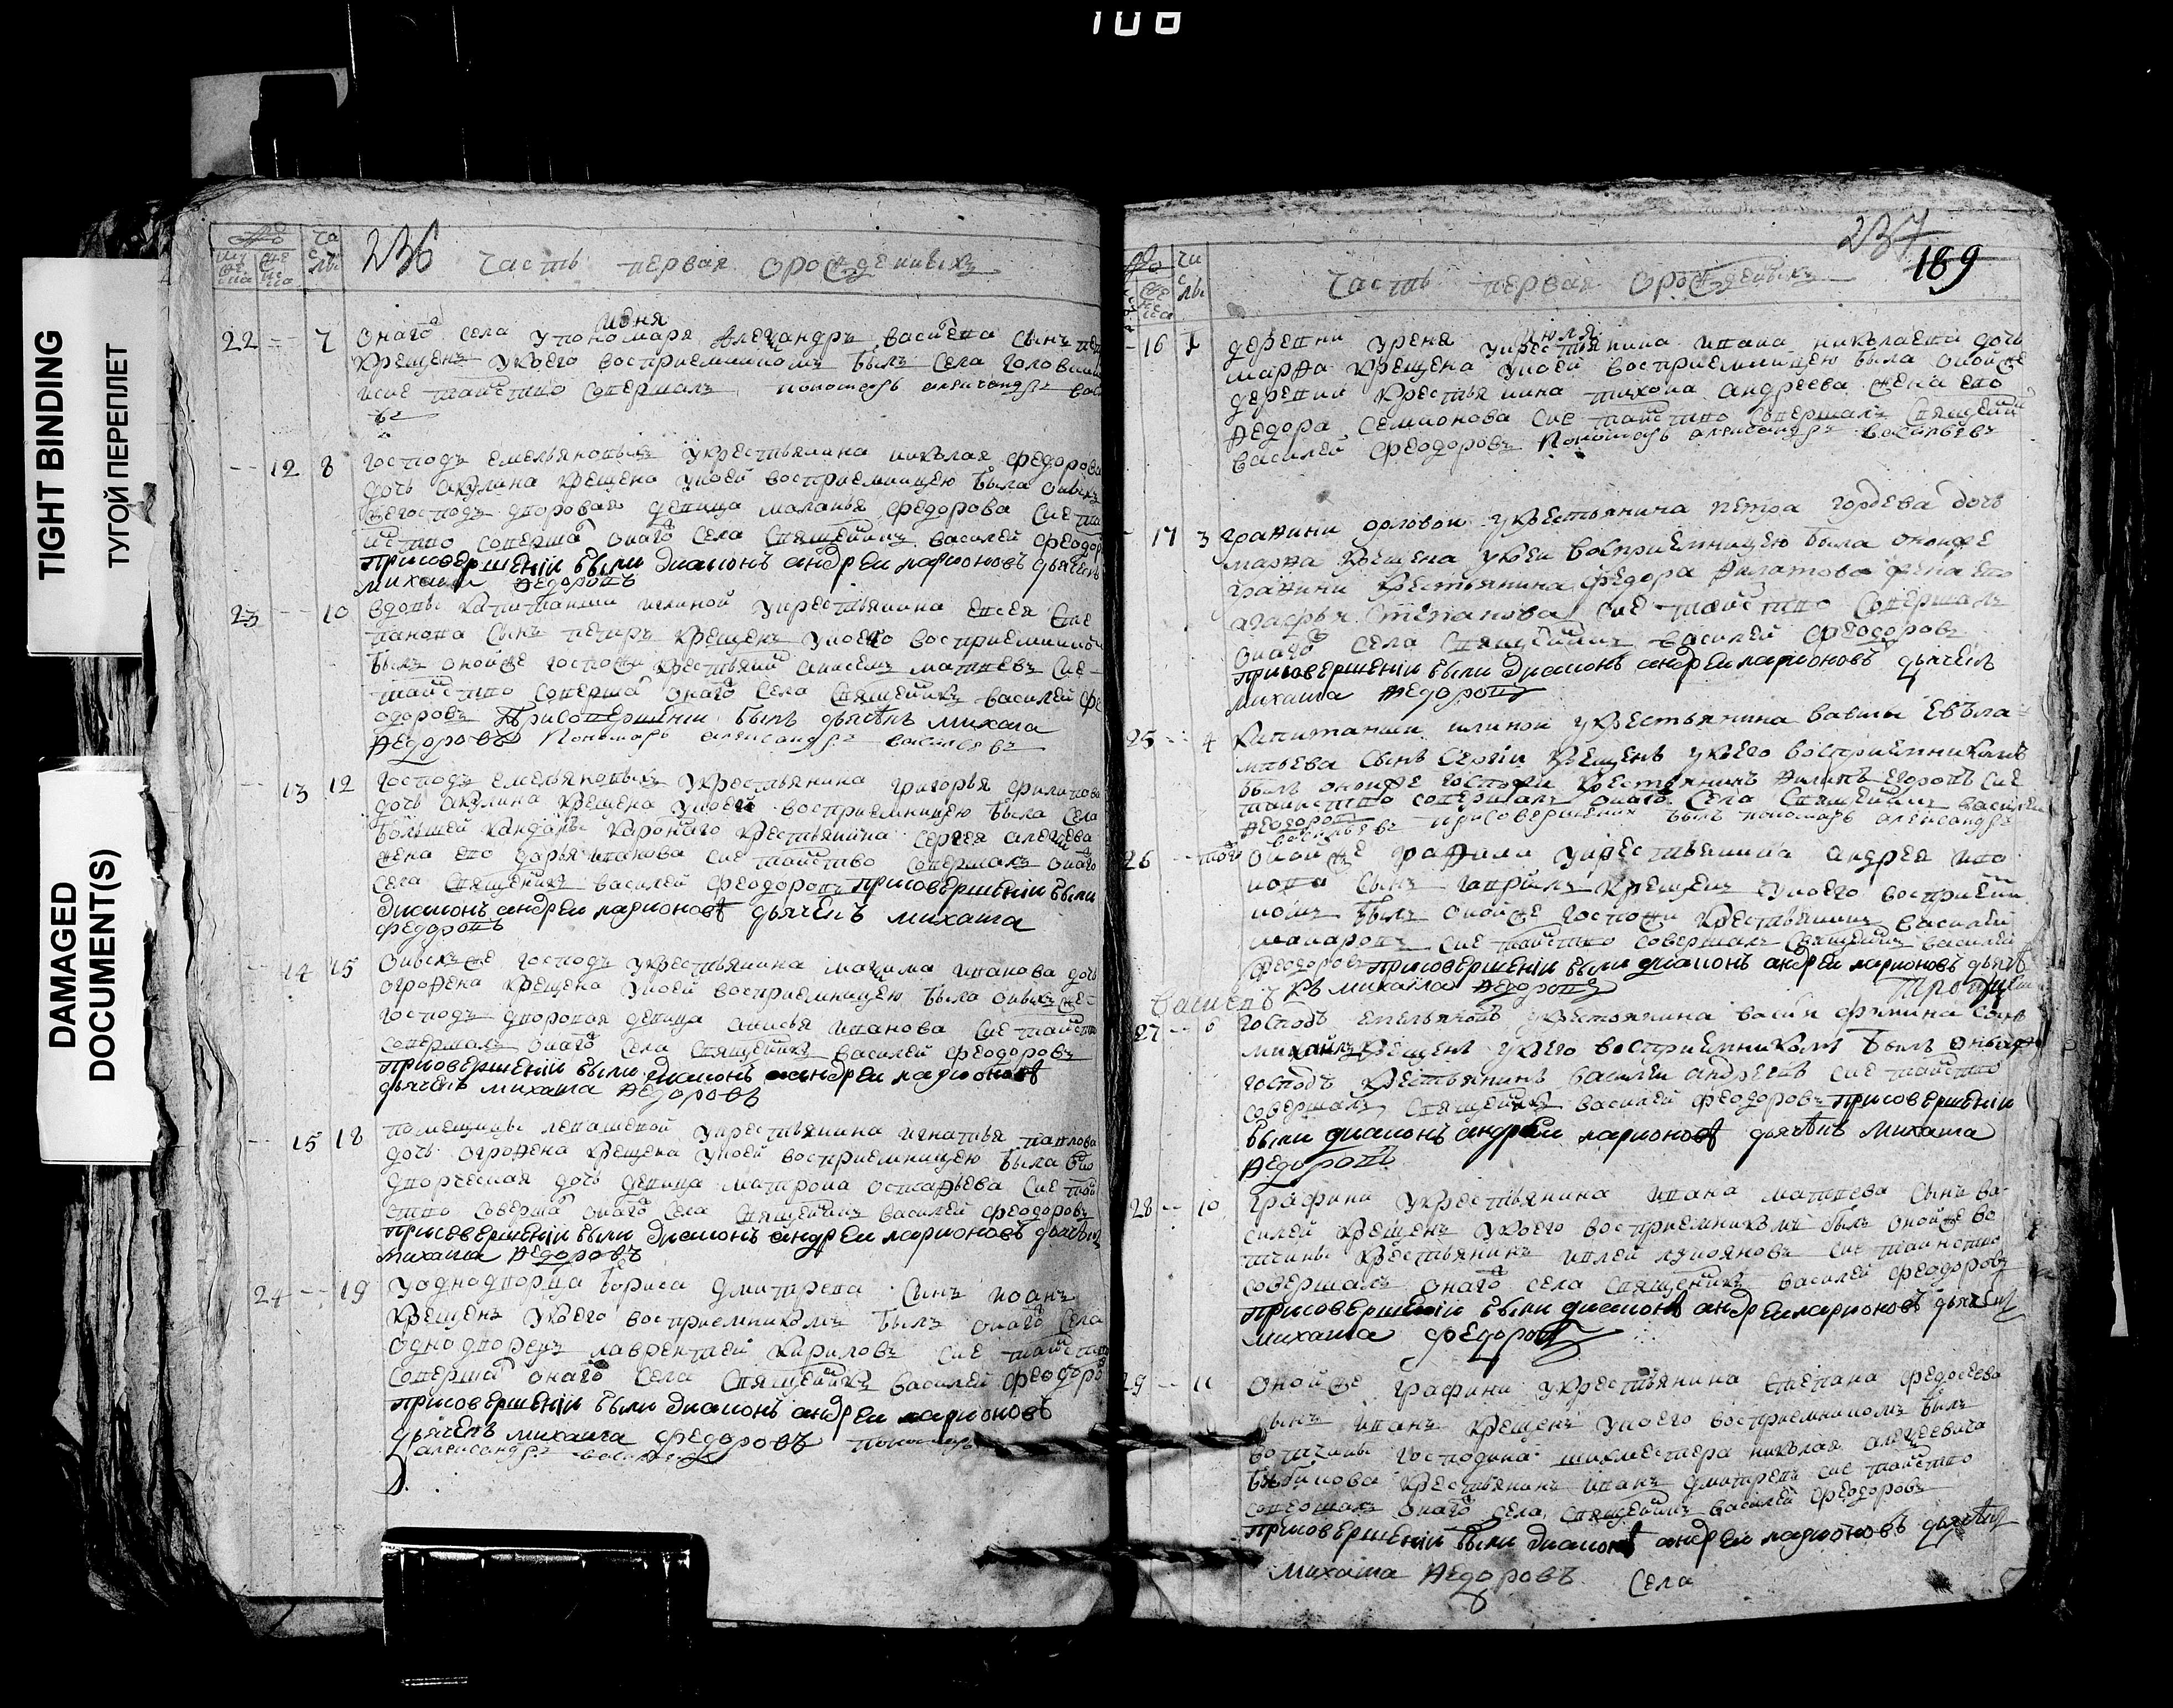 108
TIGHT BINDING
ТУГОЙ ПЕРЕПЛЕТ
DAMAGED
DOCUMENT(S)
236 часть первая оро ждениыхъ
июня
22 7 онаго села упономаря александра васильева сынъ
крещенъ укоего восприемникомъ былъ села
таиство совершалъ пономарь александръ
12 8 господъ емельяновыхъ укрестьянина николая федорова
дочь акулина крещена укоей восприемницею была оныхъ
же господъ дворовая девица маланья федорова сие
совершалъ онаго села священникъ василей феодоровъ
присовершении были диаконъ андреи ларионовъ дьячекъ
михаила федоровъ
23 10 вдовы капитанши укрестьянина
сынъ петръ крещенъ укоего восприемникомъ
былъ онойже госпожи крестьянинъ матвеевъ сие
таиство совершалъ онаго села священникъ василей фе
одоровъ присовершении былъ дьячекъ михаила
федоровъ пономарь александръ васильевъ
13 12 господъ емельяновыхъ укрестьянина григорья филипова
дочь акулина крещена укоей восприемницею была села
большей кандалы крестьянина сергея алексеева
жена ево дарья иванова сие таиство совершалъ онаго
села священникъ василей феодоровъ присовершении были
диаконъ андреи ларионовъ дьячекъ михаила
федоровъ
14 15 оныхъже господъ укрестьянина максима иванова дочь
огрофена крещена укоей восприемницею была оныхъже
господъ дворовая девица анисья иванова сие таиство
совершалъ онаго села священникъ василей феодоровъ
присовершении были диаконъ андреи ларионовъ
дьячекъ михаила федоровъ
15 18 помещицы укрестьянина игнатья павлова
дочь огрофена крещена укоей восприемницею была
дворческая дочь девица матрона остафьева сие
совершалъ онаго села священникъ василей феодоровъ
присовершении были диаконъ андреи ларионовъ дьячекъ
михаила федоровъ
24 19 уоднодворца бориса дмитрева сынъ иоанъ
крещенъ укоего восприемникомъ былъ онаго села
однодворецъ лаврентей кириловъ сие таиство
совершалъ онаго села священникъ василей феодоровъ
присовершении были диаконъ андреи ларионовъ
дьячекъ михаила федоровъ пономарь
александръ васильевъ
237
189
часть первая оро жденныхъ
июля
16 1 деревни уреня укрестьянина ивана николаева дочь
марфа крещена укоей восприемницею была онойже
деревни крестьянина тихона андреева жена ево
федора семионова сие таиство совершалъ священникъ
василей феодоровъ пономарь александръ васильевъ
17 3 графини орловои укрестьянина петра гордева дочь
марфа крещена укоеи восприемницею была оноиже
графини крестьянина федора филатова жена ево
агафья степанова сие таиство совершалъ
онаго села священникъ василей феодоровъ
присовершении были диаконъ андреи ларионовъ дьячекъ
михаила федоровъ
25 4 капитанши укрестьянина вавилы евъла
мпьева сынъ сергии крещенъ укоего восприемникомъ
былъ оноиже госпожи крестьянинъ филипъ егоровъ сие
таинство совершалъ онаго села священникъ василеи
федоровъ присовершении былъ пономарь александръ
васильевъ
26 онойже графини укрестьянина андрея
сынъ гаврилъ крещенъ укоего восприем
комъ былъ онойже госпожи крестьянинъ василей
макаровъ сие таиство совершалъ священникъ василей
феодоровъ присовершении были диаконъ андреи ларионовъ дьяче
къ михаила федоровъ
27 6 господъ емельяновъ укрестьянина васи фомина сынъ
михаилъ крещенъ укоего восприемникомъ былъ оныхъ
господъ крестьянинъ василеи андреевъ сие таиство
совершалъ священникъ василей феодоровъ присовершении
были диаконъ андреи ларионовъ дьячекъ михаила
федоровъ
28 10 графини укрестьянина ивана матвеева сынъ ва
силей крещенъ укоего восприемникомъ былъ онойже во
тчины крестьянинъ сие таинство
совершалъ онаго села священникъ василей феодоровъ
присовершении были диаконъ андреи ларионовъ дьячекъ
михаила федоровъ
29 11 онойже графини укрестьянина степана федосеева
сынъ иванъ крещенъ укоего восприемникомъ былъ
вотчины господина николая алексеевича
крестьянинъ иванъ дмитревъ сие таиство
совершалъ онаго села священникъ василей феодоровъ
присовершении были диаконъ андреи ларионовъ дьячекъ
михаила федоровъ села